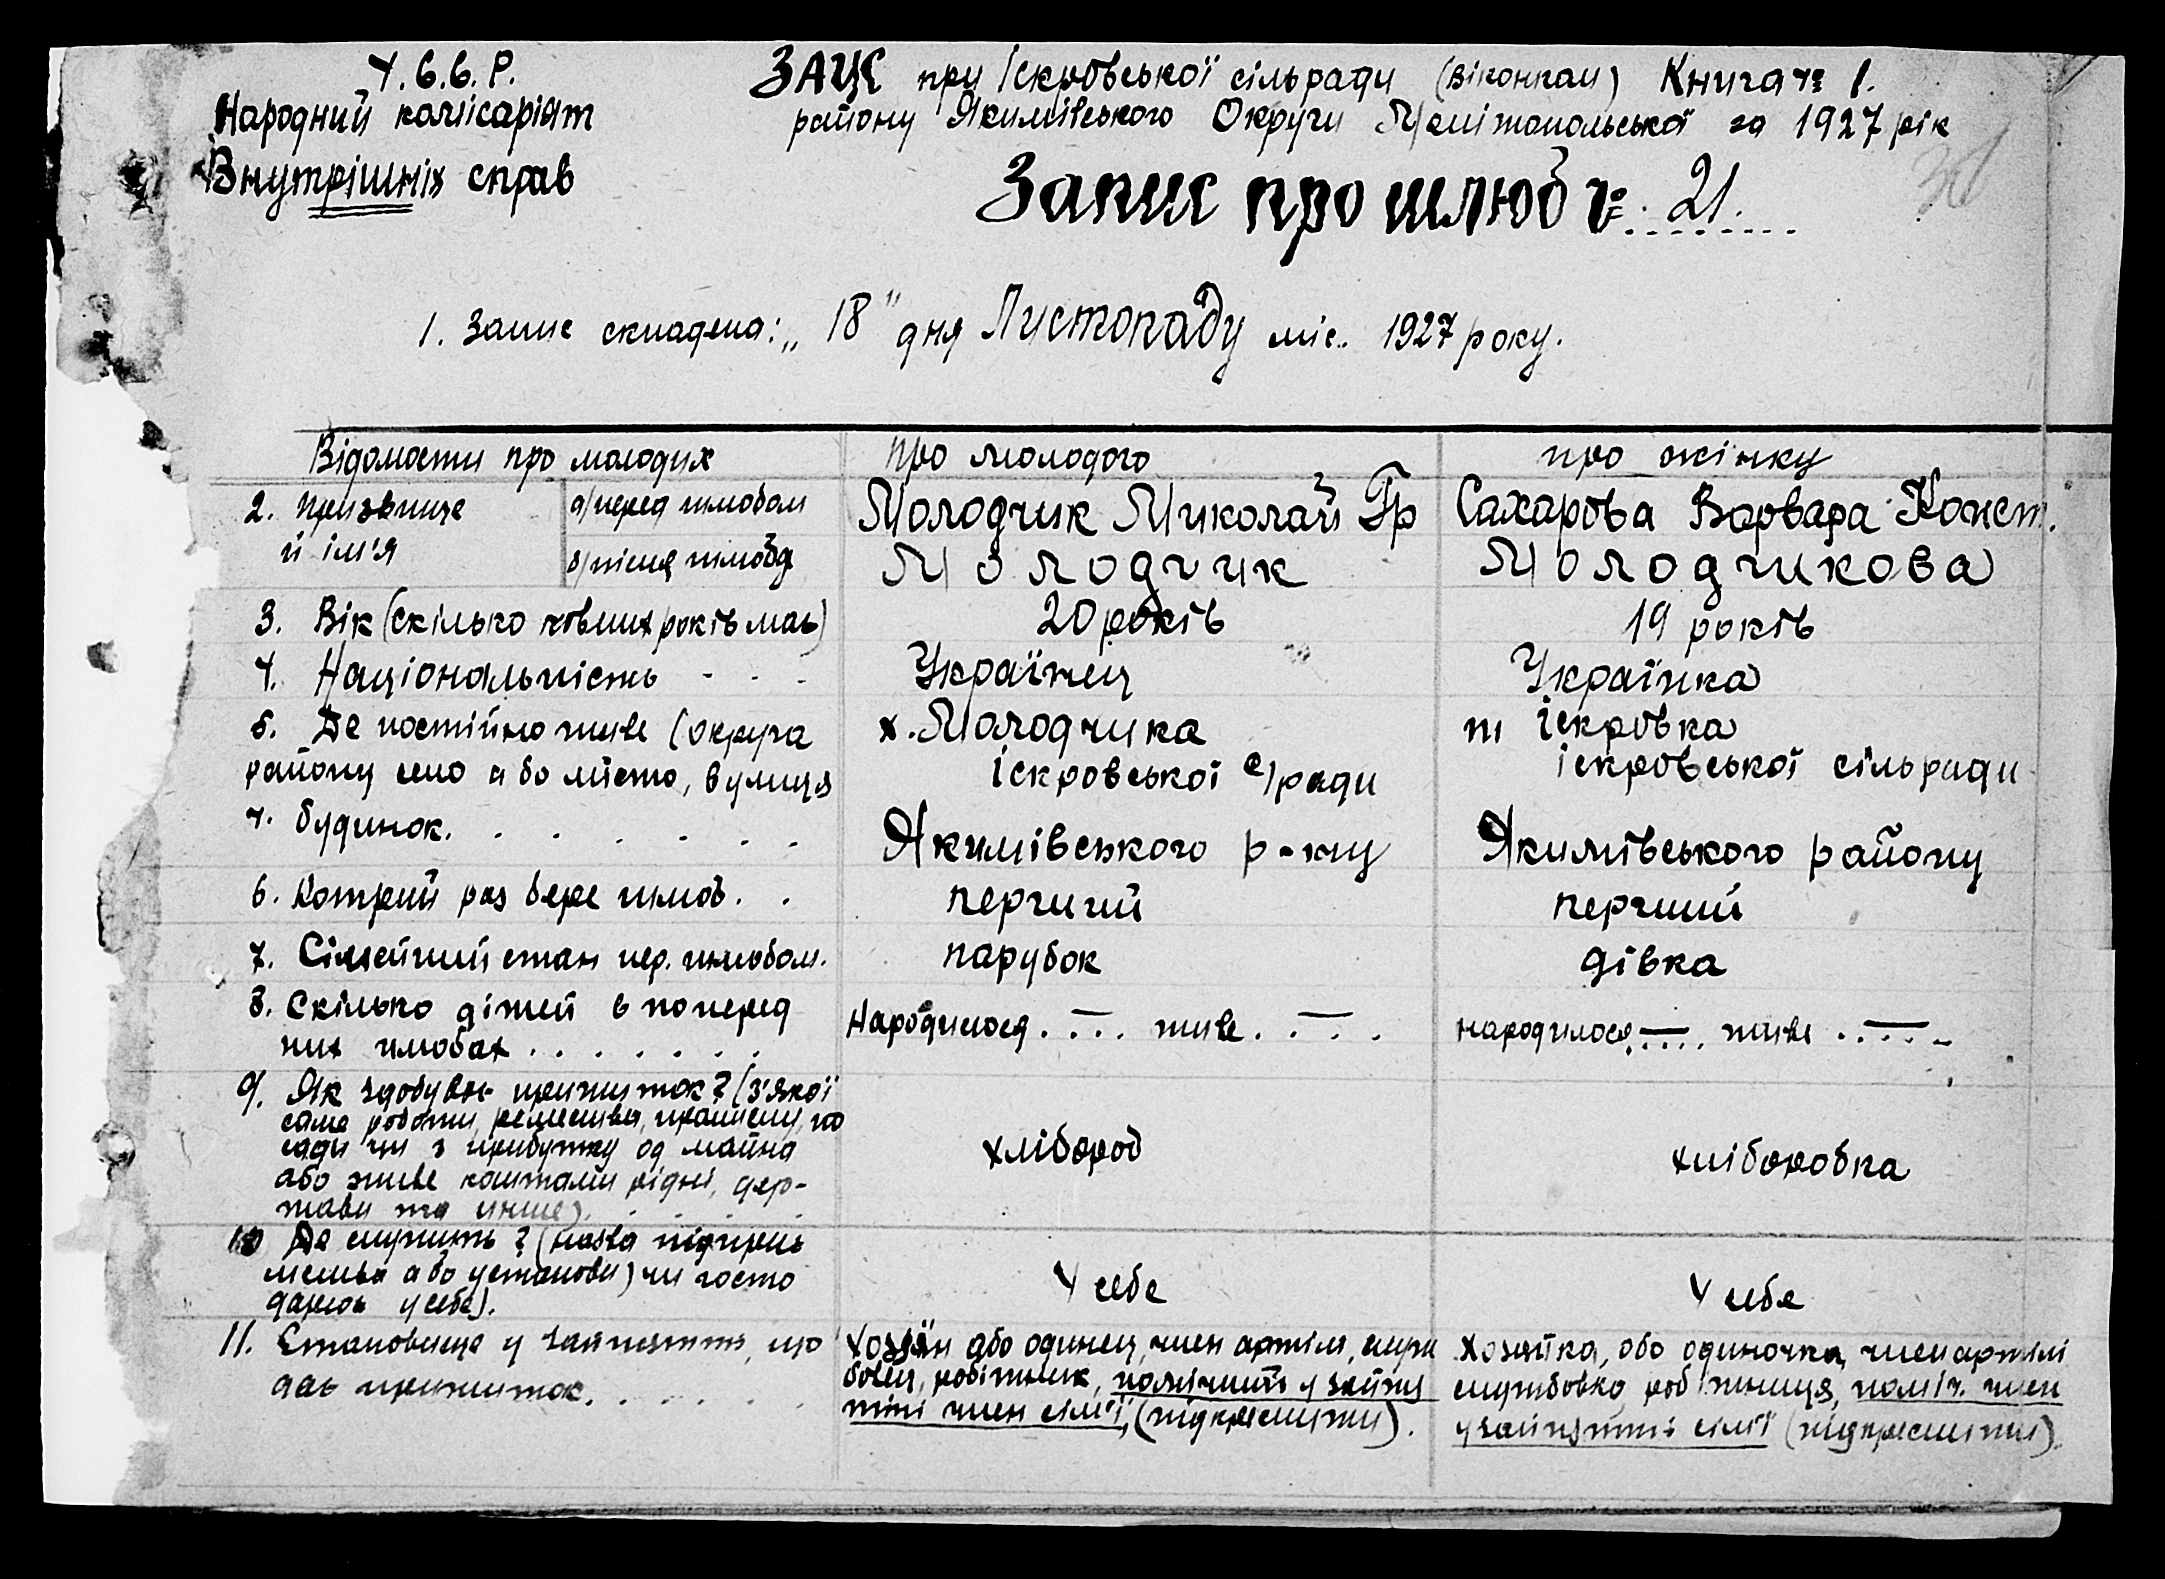 У.С.С.Р.
Народний комісаріят
Внутрішніх справ
ЗАЦС при Іскровської сільради (віконком) Книга № 1.
району Якимівського Округи Мелітопольської за 1927 рік
Запис про шлюб №. 21.
1. Запис складено: „ 18 " дня Листопаду міс. 1927 року.
Відомости про молодих
про молодого
про жінку
2. Призвище й ім'я
а/ перед шлюбом
Молодчик Миколай Гр
Сахарова Варвара Конст.
б/ після шлюбу
Молодчик
Молодчикова
3. Вік (скілько повних років має)
20 років
19 років
4. Національність . . .
Українец
Українка
5. Де постійно живе (округа
району село або місто, вулиця
ч. будинок. . . . . . .
х. Молодчика
Іскровської с/ради
Якимівського р-ну
Іскровка
іскровської сільради
Якимівського району
6. Котрий раз бере шлюб. .
перший
перший
7. Сімейний стан пер. шлюбом.
парубок
дівка
8. Скілько дітей в поперед
них шлюбах . . . . . . .
Народилося . — . . живе . . — . .
народилося — . . . живе . . — . .
9. Як здобуває прожиток? (з'якої
саме роботи, ремества, промислу, по
сади чи з прибутку од майна
або живе коштами рідні, дер-
жави та инше). . . . .
хлібороб
хлібороб­ка
10 Де служить? (назва підприє
мства або установи) чи госпо
дарює у себе).
У себе
У себе
11. Становище у заняттті, що
дає прожиток. . . . . .
Хозяїн або одинец, член артілі, служ
бовец, робітник, помічний у заня
тті член сімї, (підкреслити).
Хозяйка, або одиночка, член артілі
службовка, робітниця, поміч. член
у занятті сімї (підкреслити).